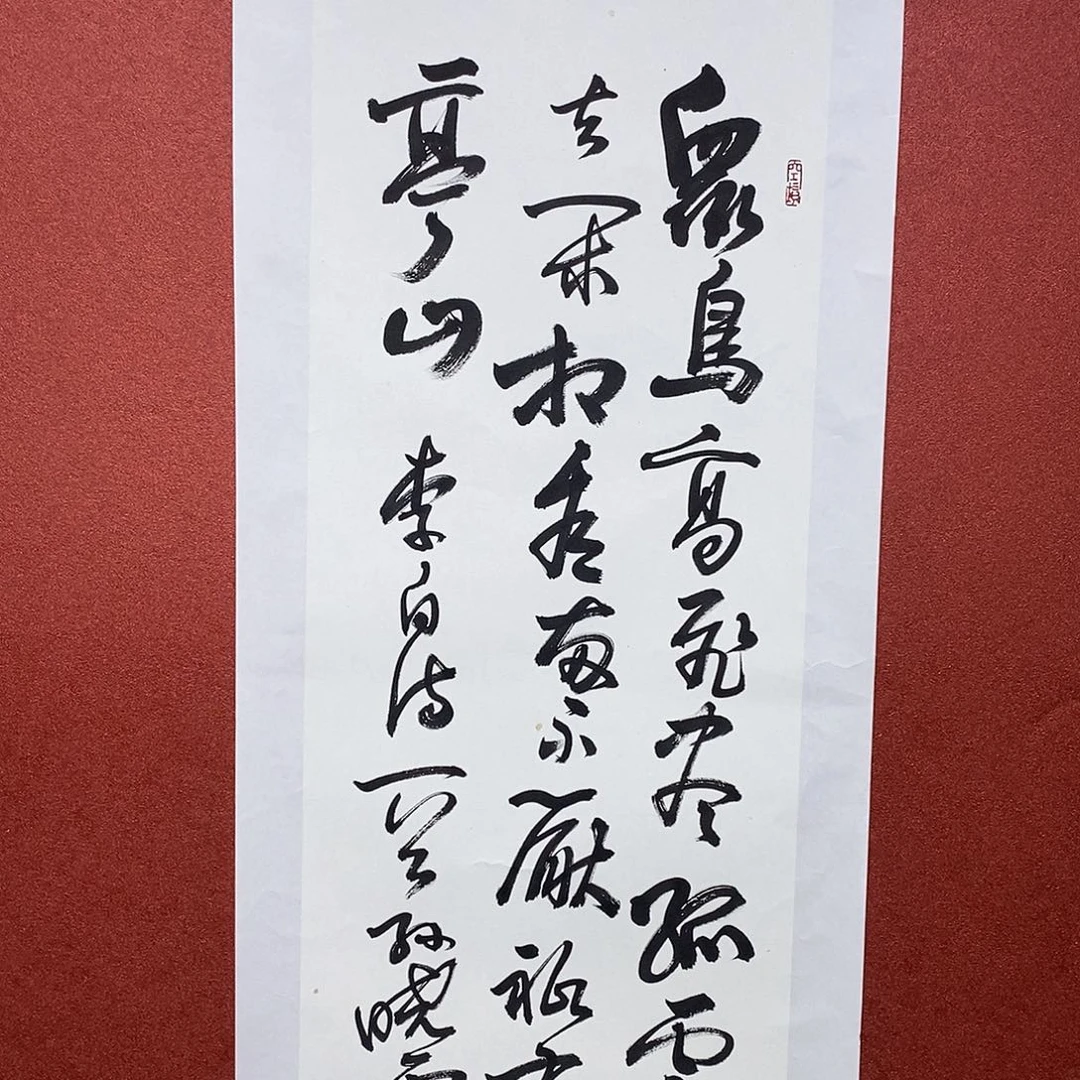 眾鳥高飛盡孤雲
去閑相看兩不厭祇有
亭山 李白詩 孫曉雲